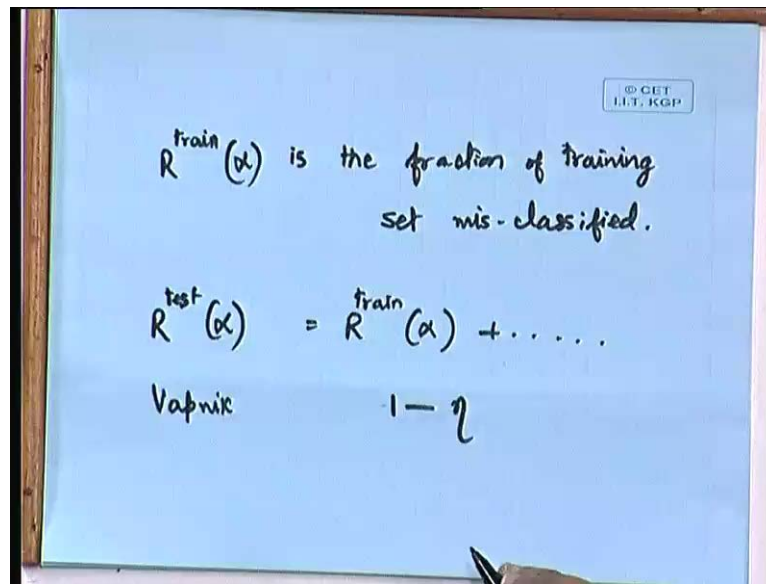 © CET
I.I.T. KGP
R^train(α) is the fraction of training
set mis-classified.
R^test(α) = R^train(α) + . . . . .
Vapnik 1 - η